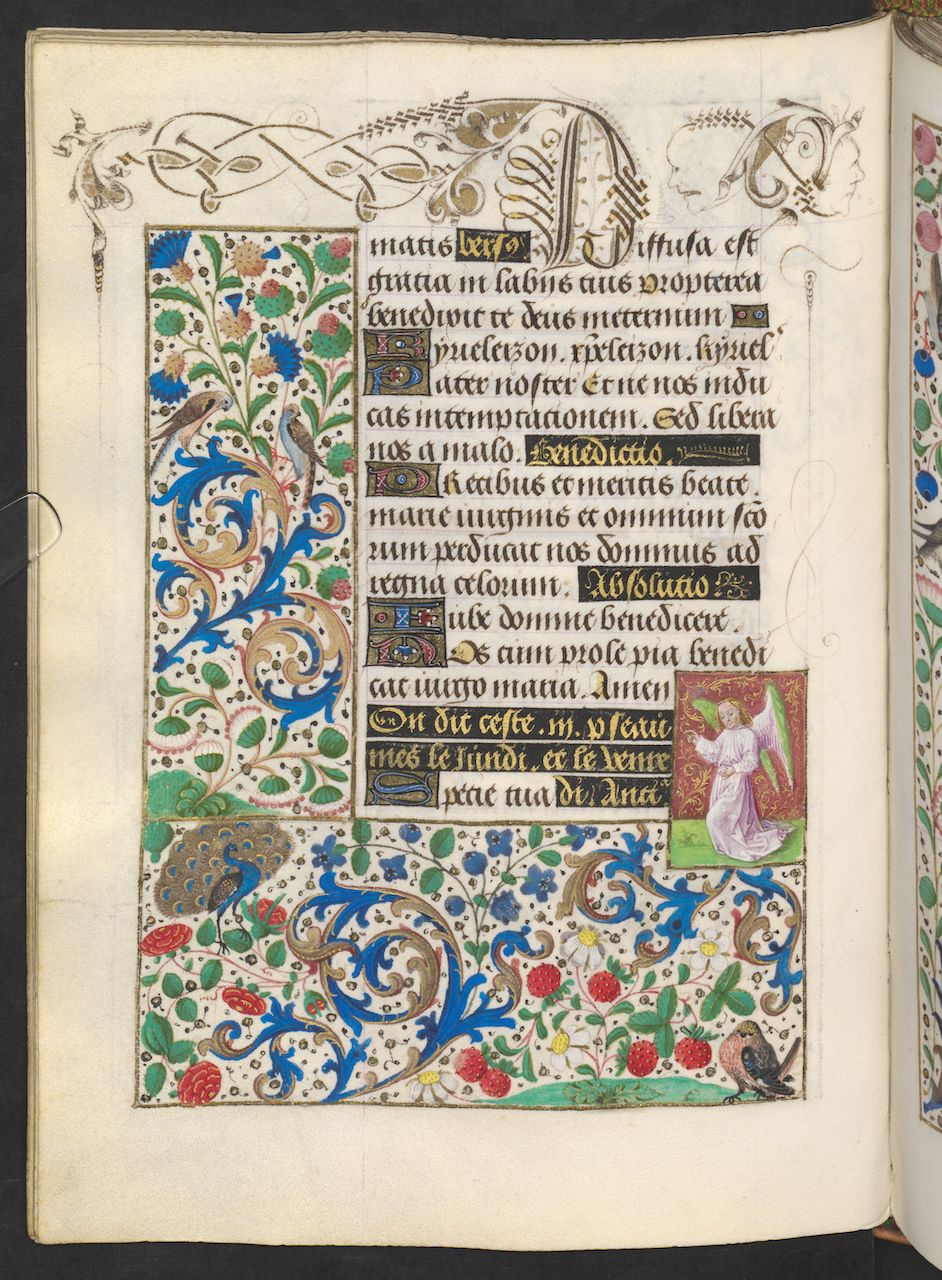 matis vers⁹ Diffusa est
gratia in labiis tuis Propterea
benedixit te deus ineternum
Kyrieleizon. xp̄eleizon. kyriel'
Pater noster Et ne nos indu
cas intemptacionem. Sed libera
nos a malo. Benedictio.
Precibus et meritis beate
marie uirginis et omnium sc̄o
rum perducat nos dominus ad
regna celorum. Absolutio
Iube domine benedicere.
Nos cum prole pia benedi
cat uirgo maria. Amen
On dit ceste .iij. pseau
mes le lundi. et le venre
Specie tua di Anti